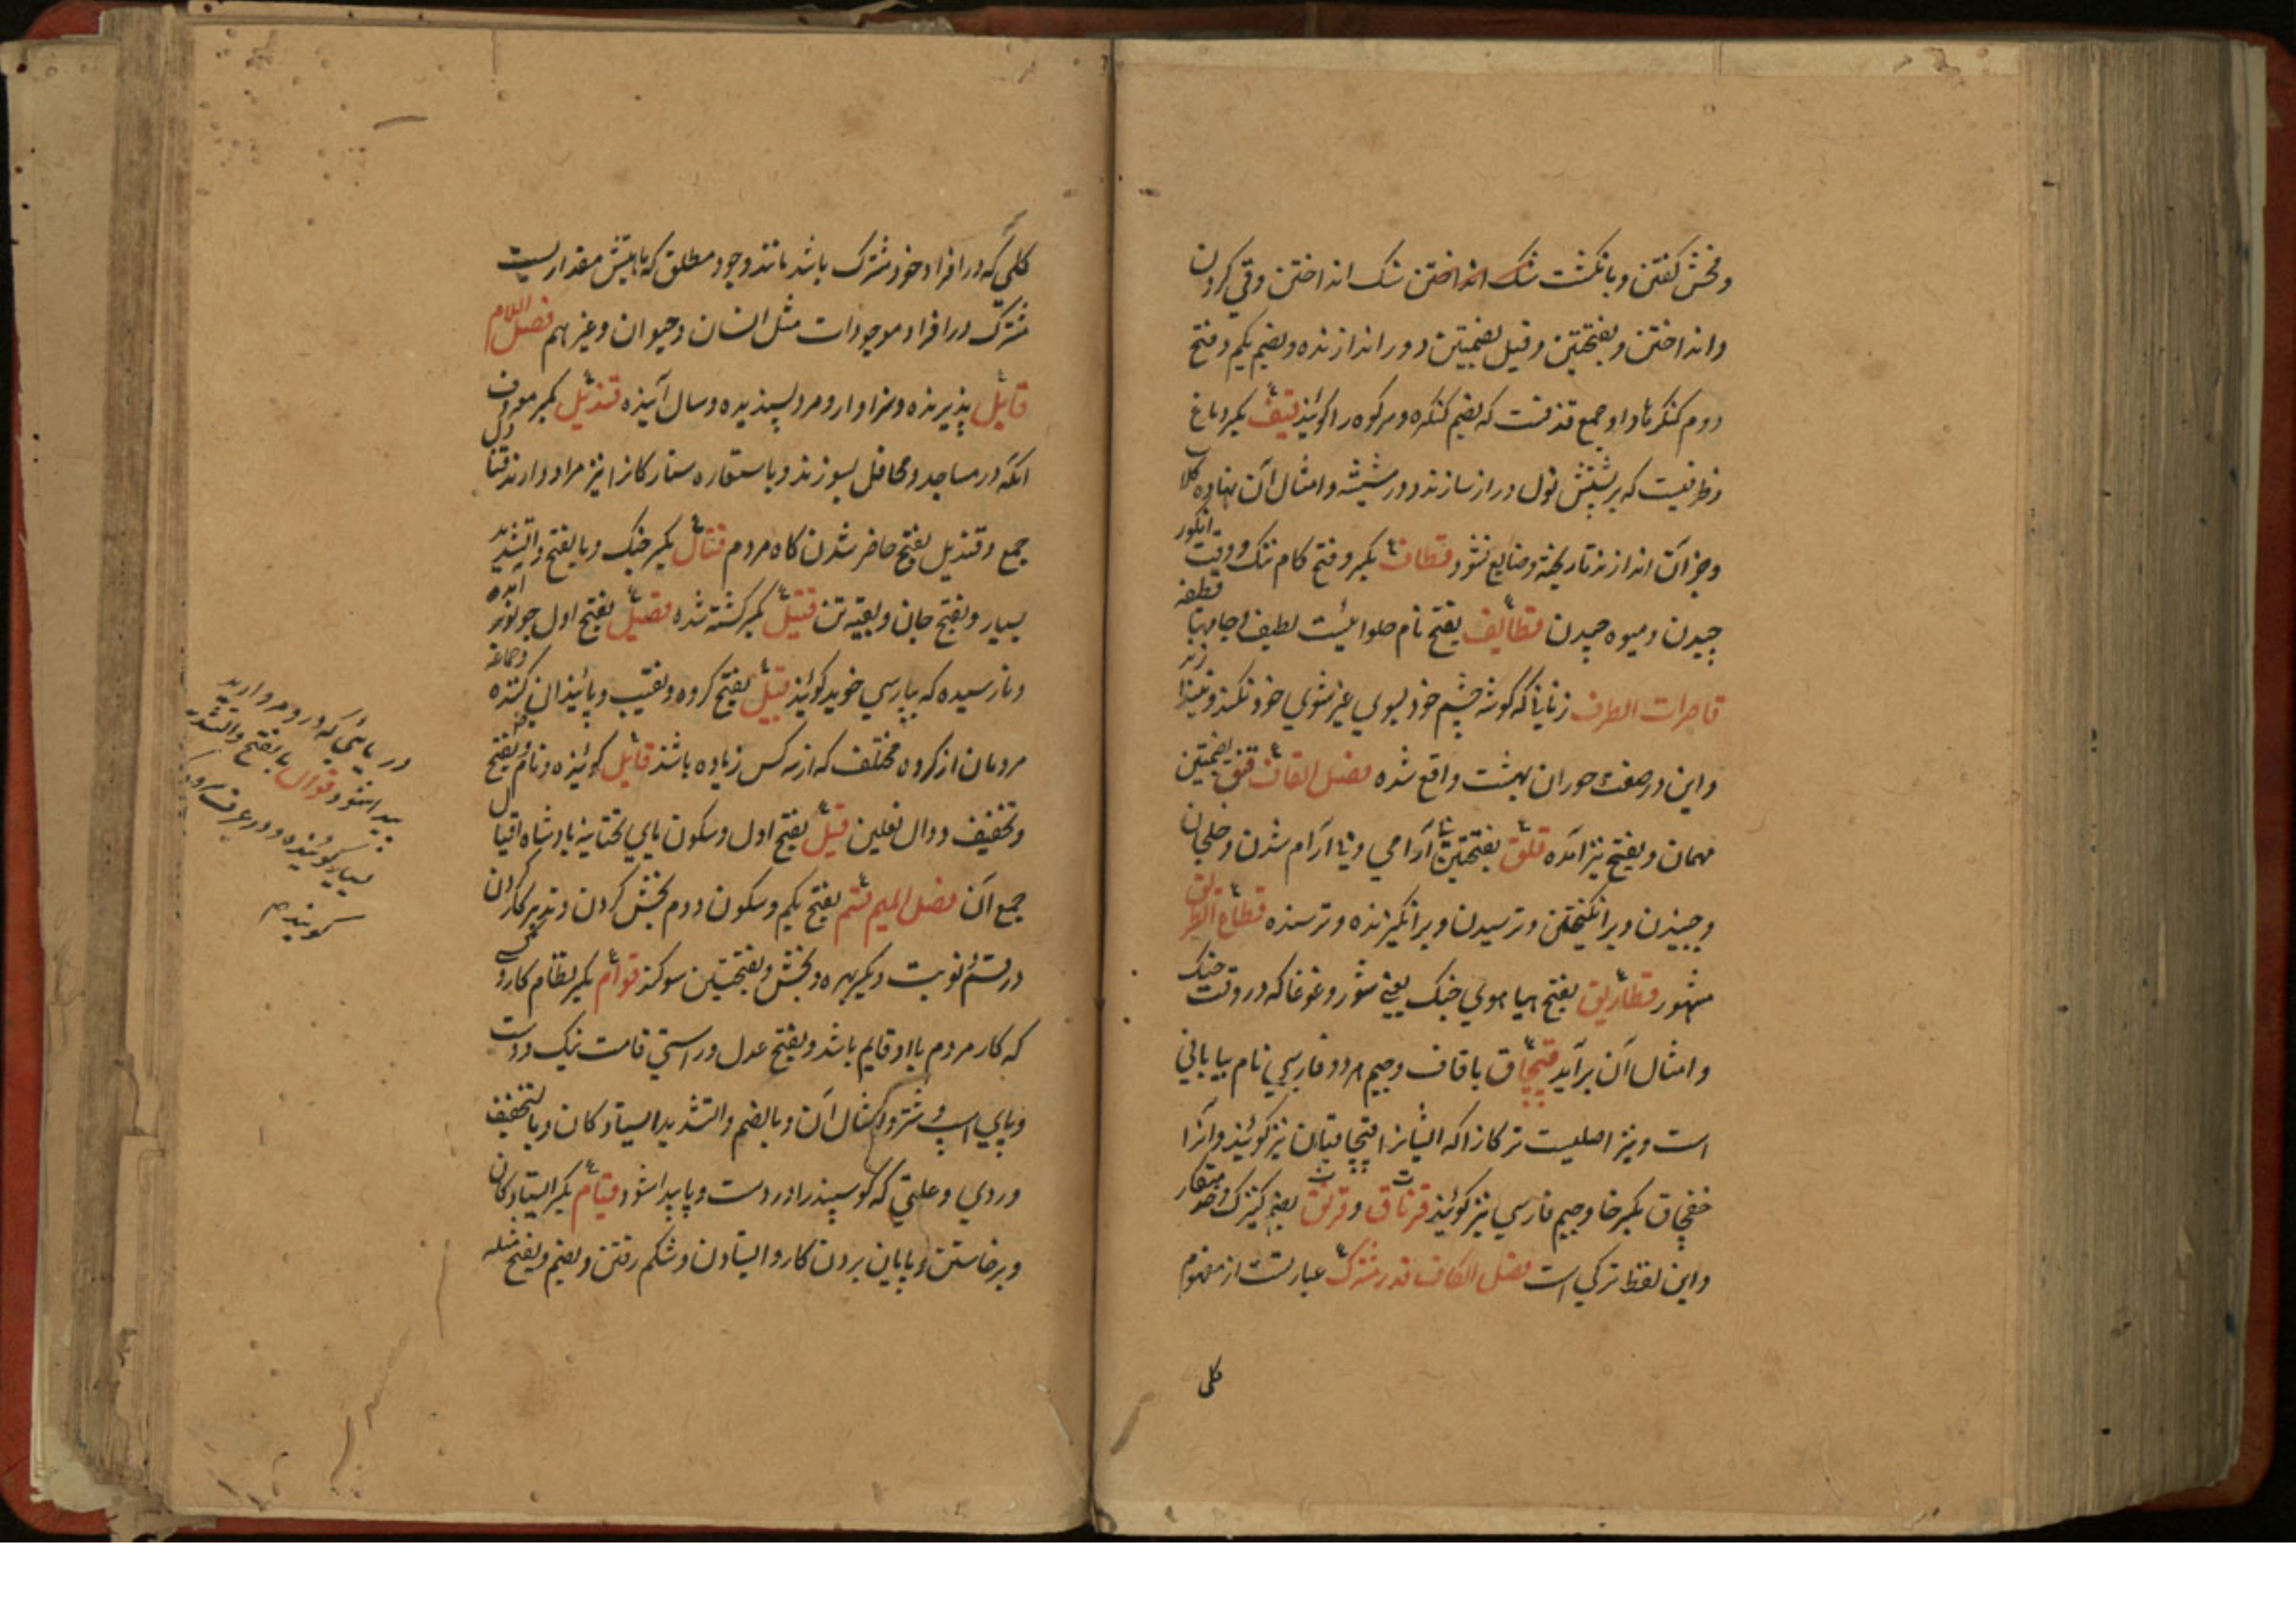 و فحش کفتن و بانکشت سنک انداختن سنک انداختن و قی کردن
و انداختن و بفتحتین و قیل بضمتین دور اندازنده و بضم یکم و فتح
دوم کنکرها و او جمع قذفت که بضم کنکره و سر کوه را کویند قیف بکسر اباغ
و ظرفیست که بر پشتش نول دراز سازند و در شیشه و امثال آن نهاده کلاب
و جز آن اندازند تا ریخته و ضایع نشود قطاف بکسر و فتح کام تنک و وقت انکور
چیدن و میوه چیدن قطایف بفتح نام حلوائیست لطیف و جامهها قطیفه
قاصرات الطرف زنانیکه کوشه چشم خود بسوی غیر شوی خود نکنند و نیندازند
و این در صفت حوران بهشت واقع شده فصل القاف قنق بضمتین
مهمان و بفتح نیز آمده قلق بفتحتین نا آرامی و نا آرام شدن و خلجان
و جنبیدن و برانکیختن و ترسیدن و برانکیزنده و ترسنده قطاع الطریق
مشهور قطاریق بفتح هیاهوی جنک یعنی شور و غوغا که در وقت جنک
و امثال آن برآید قپچاق با قاف و جیم هر دو فارسی نام بیابانی
است و نیز اصلیست ترکانرا که ایشانرا قپچاقیان نیز کویند و آنرا
خفچاق بکسر خا و جیم فارسی نیز کویند قرناق و قرنق بضم کنیزک و خدمتکار
و این لفظ ترکی است فصل الکاف قدر مشترک عبارتست از مفهوم
کلی
کلی که در افراد خود مشترک باشد مانند وجود مطلق که ماهیتش مقداریست
مشترک در افراد موجودات مثل انسان و حیوان و غیرهم فصل اللام
قابل پذیرنده و سزاوار و مرد پسندیده و سال آینده قندیل بکسر معروف
انکه در مساجد و محافل بسوزند و باستعاره ستارکانرا نیز مراد دارند قنادل
جمع و قندیل بفتح حاضر شدن کاه مردم قتال بکسر جنک و بالفتح و التشدید
بسیار و بفتح جان و بقیه تن قتیل بکسر کشته شده قصیل بفتح اول جو نو برآمده
و نارسیده که بپارسی خوید کویند قبیل بفتح کروه و نقیب و پائیندان کننده و جماعة
مردمان از کروه مختلف که از سه کس زیاده باشند قایل کوینده و نام بفتح
و تخفیف دوال نعلین قیل بفتح اول و سکون یای تحتانیه پادشاه اقیال
جمع آن فصل المیم قسم بفتح یکم و سکون دوم بخش کردن و تدبیر کار کردن
در قسم نوبت و بکسر بهره و بخش و بفتحتین سوکند قوام بکسر نظام کار و کسی
که کار مردم باو قایم باشد و بفتح عدل و راستی قامت نیک و درست
و پای اسپ و شتر و امثال آن و بالضم و التشدید ایستادکان و بالتخفیف
وردی و علتی که کوسپند را در دست و پا پیدا شود قیام بکسر ایستادکان
و برخاستن و بپایان بردن کار و ایستادن و شکم رفتن و بضم و بفتح مثله
در یائی که درو مروارید
پیدا شود قوال بالفتح و التشدید
بسیار کوینده و در عرف سرود
کویندم